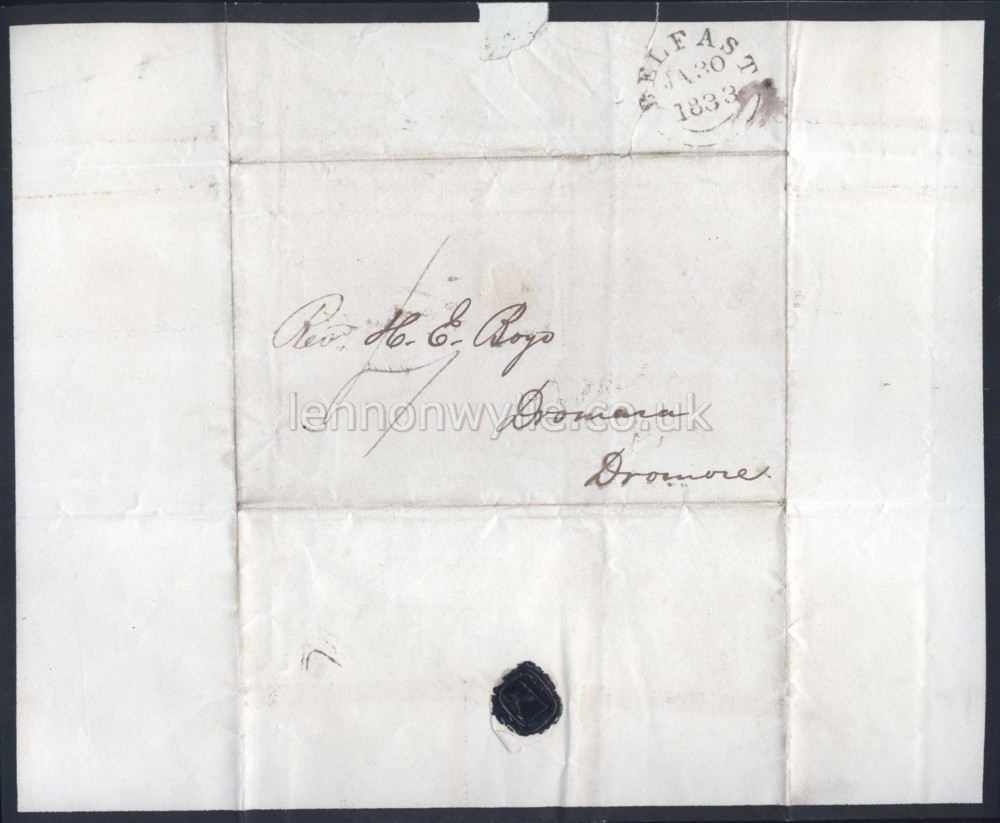 BELFAST
JA 30
1833
Revd. H. E. Boyd
Dromara
Dromore.
lennonwylie.co.uk